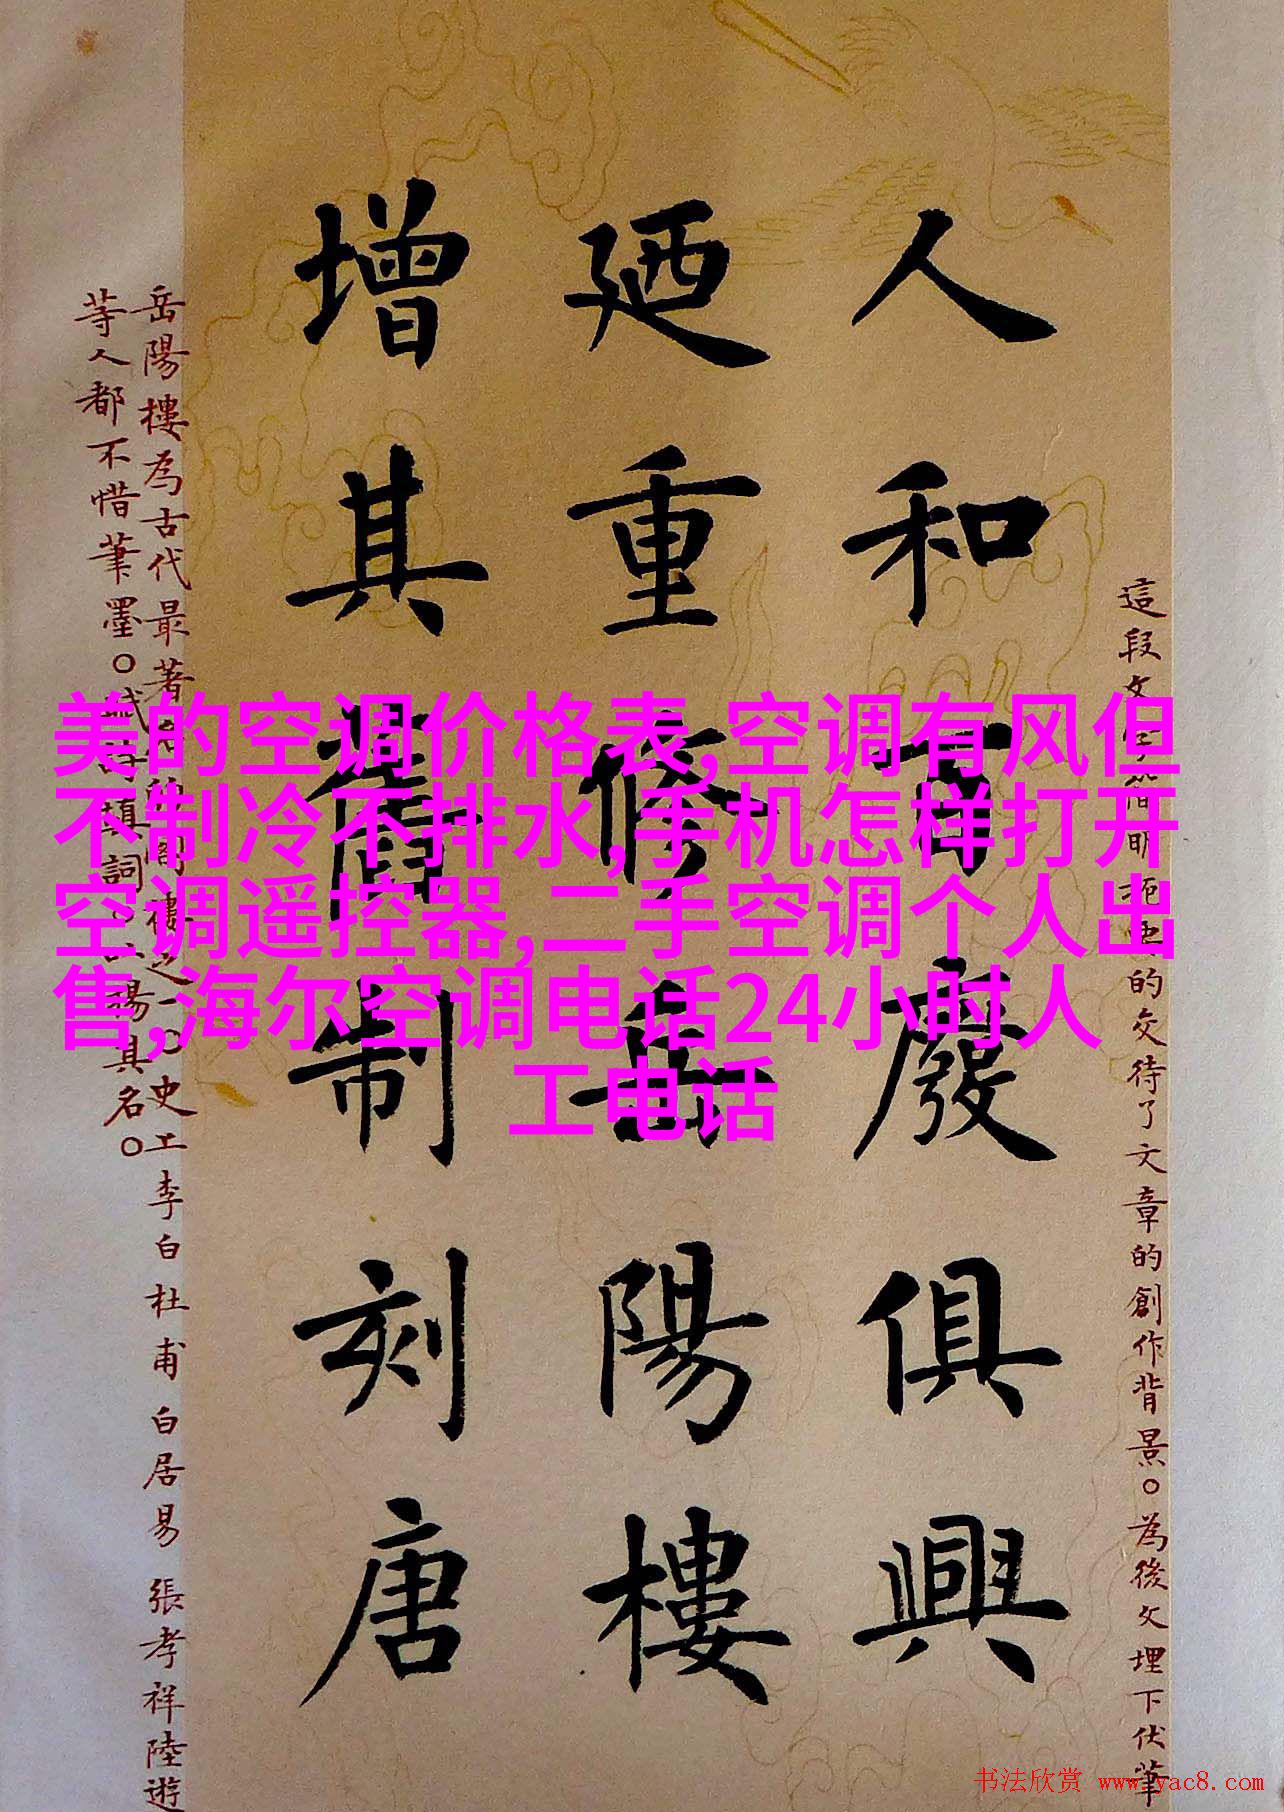 人和百廢俱興
廼重修岳陽樓
增其舊制刻唐
美的空调价格表,空调有风但
不制冷不排水,手机怎样打开
空调遥控器,二手空调个人出
售,海尔空调电话24小时人
工电话
這段文
的交待了文章的創作背景。為後文埋下伏筆
岳陽樓為古代最著
史工李白杜甫白居易張孝祥陸遊
等人都不惜筆墨。
填詞。
揚其名。
书法欣赏 www.yac8.com